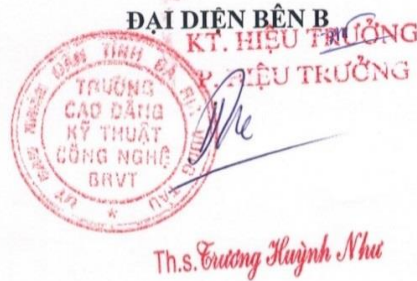 ĐẠI DIỆN BÊN B
KT. HIỆU TRƯỞNG
P. HIỆU TRƯỞNG
ỦY BAN NHÂN DÂN TỈNH BÀ RỊA VŨNG TÀU
TRƯỜNG
CAO ĐẲNG
KỸ THUẬT
CÔNG NGHỆ
BRVT
Th.s. Trương Huỳnh Như